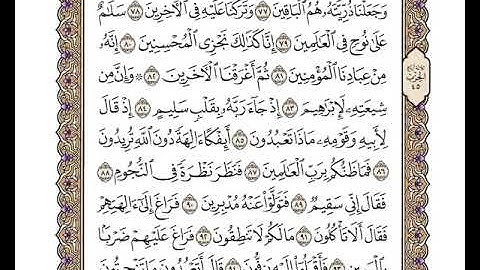 وَجَعَلْنَا ذُرِّيَّتَهُۥ هُمُ ٱلْبَاقِينَ ٧٧ وَتَرَكْنَا عَلَيْهِ فِى ٱلْءَاخِرِينَ ٧٨ سَلَٰمٌ
عَلَىٰ نُوحٍ فِى ٱلْعَٰلَمِينَ ٧٩ إِنَّا كَذَٰلِكَ نَجْزِى ٱلْمُحْسِنِينَ ٨٠ إِنَّهُۥ
مِنْ عِبَادِنَا ٱلْمُؤْمِنِينَ ٨١ ثُمَّ أَغْرَقْنَا ٱلْءَاخَرِينَ ٨٢ وَإِنَّ مِن
شِيعَتِهِۦ لَإِبْرَٰهِيمَ ٨٣ إِذْ جَآءَ رَبَّهُۥ بِقَلْبٍ سَلِيمٍ ٨٤ إِذْ قَالَ
لِأَبِيهِ وَقَوْمِهِۦ مَاذَا تَعْبُدُونَ ٨٥ أَئِفْكًا ءَالِهَةً دُونَ ٱللَّهِ تُرِيدُونَ
٨٦ فَمَا ظَنُّكُم بِرَبِّ ٱلْعَٰلَمِينَ ٨٧ فَنَظَرَ نَظْرَةً فِى ٱلنُّجُومِ ٨٨
فَقَالَ إِنِّى سَقِيمٌ ٨٩ فَتَوَلَّوْا۟ عَنْهُ مُدْبِرِينَ ٩٠ فَرَاغَ إِلَىٰٓ ءَالِهَتِهِمْ
فَقَالَ أَلَا تَأْكُلُونَ ٩١ مَا لَكُمْ لَا تَنطِقُونَ ٩٢ فَرَاغَ عَلَيْهِمْ ضَرْبًۢا
بِٱلْيَمِينِ ٩٣ فَأَقْبَلُوٓا۟ إِلَيْهِ يَزِفُّونَ ٩٤ قَالَ أَتَعْبُدُونَ مَا تَنْحِتُونَ